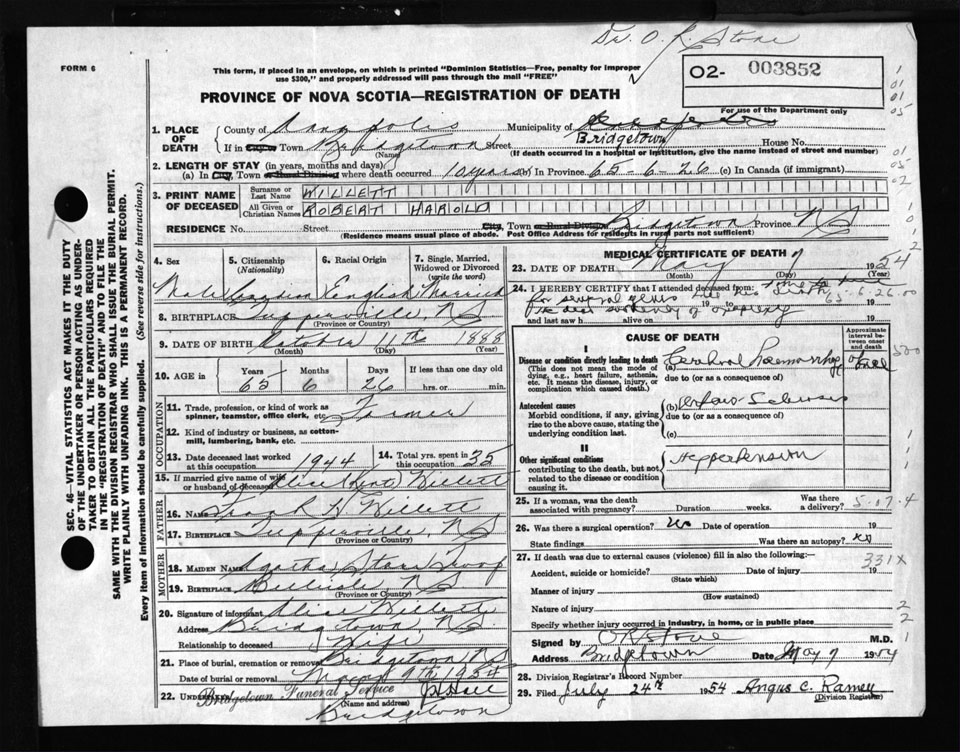 Dr. O. R. Stone
FORM 6
This form, if placed in an envelope, on which is printed "Dominion Statistics—Free, penalty for improper
use $300," and properly addressed will pass through the mail "FREE"
O2- 003852
For use of the Department only
PROVINCE OF NOVA SCOTIA—REGISTRATION OF DEATH
1. PLACE OF DEATH
County of Annapolis Municipality of
If in City or Town Bridgetown Street Bridgetown House No.
(Name) (If death occurred in a hospital or institution, give the name instead of street and number)
2. LENGTH OF STAY (in years, months and days)
(a) In City, Town or Rural Division where death occurred 10 years (b) In Province 65-6-26 (c) In Canada (if immigrant)
3. PRINT NAME OF DECEASED
Surname or Last Name WILLETT
All Given or Christian Names ROBERT HAROLD
RESIDENCE No. Street City, Town or Rural Division Bridgetown Province N S
(Residence means usual place of abode. Post Office Address for residents in rural parts not sufficient)
4. Sex
5. Citizenship (Nationality)
6. Racial Origin
7. Single, Married, Widowed or Divorced (write the word)
Male Canadian English Married
8. BIRTHPLACE Tupperville, N S
(Province or Country)
9. DATE OF BIRTH October 11th 1888
(Month) (Day) (Year)
10. AGE in Years Months Days If less than one day old
65 6 26 hrs. or min.
OCCUPATION
11. Trade, profession, or kind of work as
spinner, teamster, office clerk, etc. Farmer
12. Kind of industry or business, as cotton-
mill, lumbering, bank, etc.
13. Date deceased last worked at this occupation 1944
14. Total yrs. spent in this occupation 35
15. If married give name of wife or husband of deceased Alice (Kent) Willett
FATHER
16. Name Frank H Willett
17. Birthplace Tupperville, N S
(Province or Country)
MOTHER
18. MAIDEN NAME Agatha Starr Troop
19. BIRTHPLACE Belleisle N S
(Province or Country)
20. Signature of informant Alice Willett
Address Bridgetown, N S.
Relationship to deceased Wife
21. Place of burial, cremation or removal Bridgetown N S
Date of burial or removal May 9th 1954
22. UNDERTAKER Bridgetown Funeral Service
(Name and address)
Bridgetown
MEDICAL CERTIFICATE OF DEATH
23. DATE OF DEATH May 7 1954
(Month) (Day)
24. I HEREBY CERTIFY that I attended deceased from: time to time
for several years
65-6-26.00
and last saw h alive on 19
CAUSE OF DEATH
Approximate interval between onset and death
I
Disease or condition directly leading to death
(This does not mean the mode of
dying, e.g., heart failure, asthenia,
etc. It means the disease, injury, or
complication which caused death.)
(a) Cerebral Haemorrhage
due to (or as a consequence of)
Antecedent causes
Morbid conditions, if any, giving
rise to the above cause, stating the
underlying condition last.
(b) Arterio Sclerosis
due to (or as a consequence of)
(c)
II
Other significant conditions
contributing to the death, but not
related to the disease or condition
causing it.
Hypertension
25. If a woman, was the death associated with pregnancy? Duration weeks. Was there a delivery? 5-07-4
26. Was there a surgical operation? No Date of operation 19
State findings Was there an autopsy? no
27. If death was due to external causes (violence) fill in also the following:— 331X
Accident, suicide or homicide? Date of injury 19
(State which)
Manner of injury
(How sustained)
Nature of injury
Specify whether injury occurred in industry, in home, or in public place
Signed by O R Stone M.D.
Address Bridgetown Date May 7 1954
28. Division Registrar's Record Number
29. Filed July 24th 1954 Angus C. Ramey
(Division Registrar)
SEC. 46—VITAL STATISTICS ACT MAKES IT THE DUTY
OF THE UNDERTAKER OR PERSON ACTING AS UNDER-
TAKER TO OBTAIN ALL THE PARTICULARS REQUIRED
IN THE "REGISTRATION OF DEATH" AND TO FILE THE
SAME WITH THE DIVISION REGISTRAR WHO SHALL ISSUE THE BURIAL PERMIT.
WRITE PLAINLY WITH UNFADING INK. THIS IS A PERMANENT RECORD.
Every item of information should be carefully supplied. (See reverse side for instructions.)